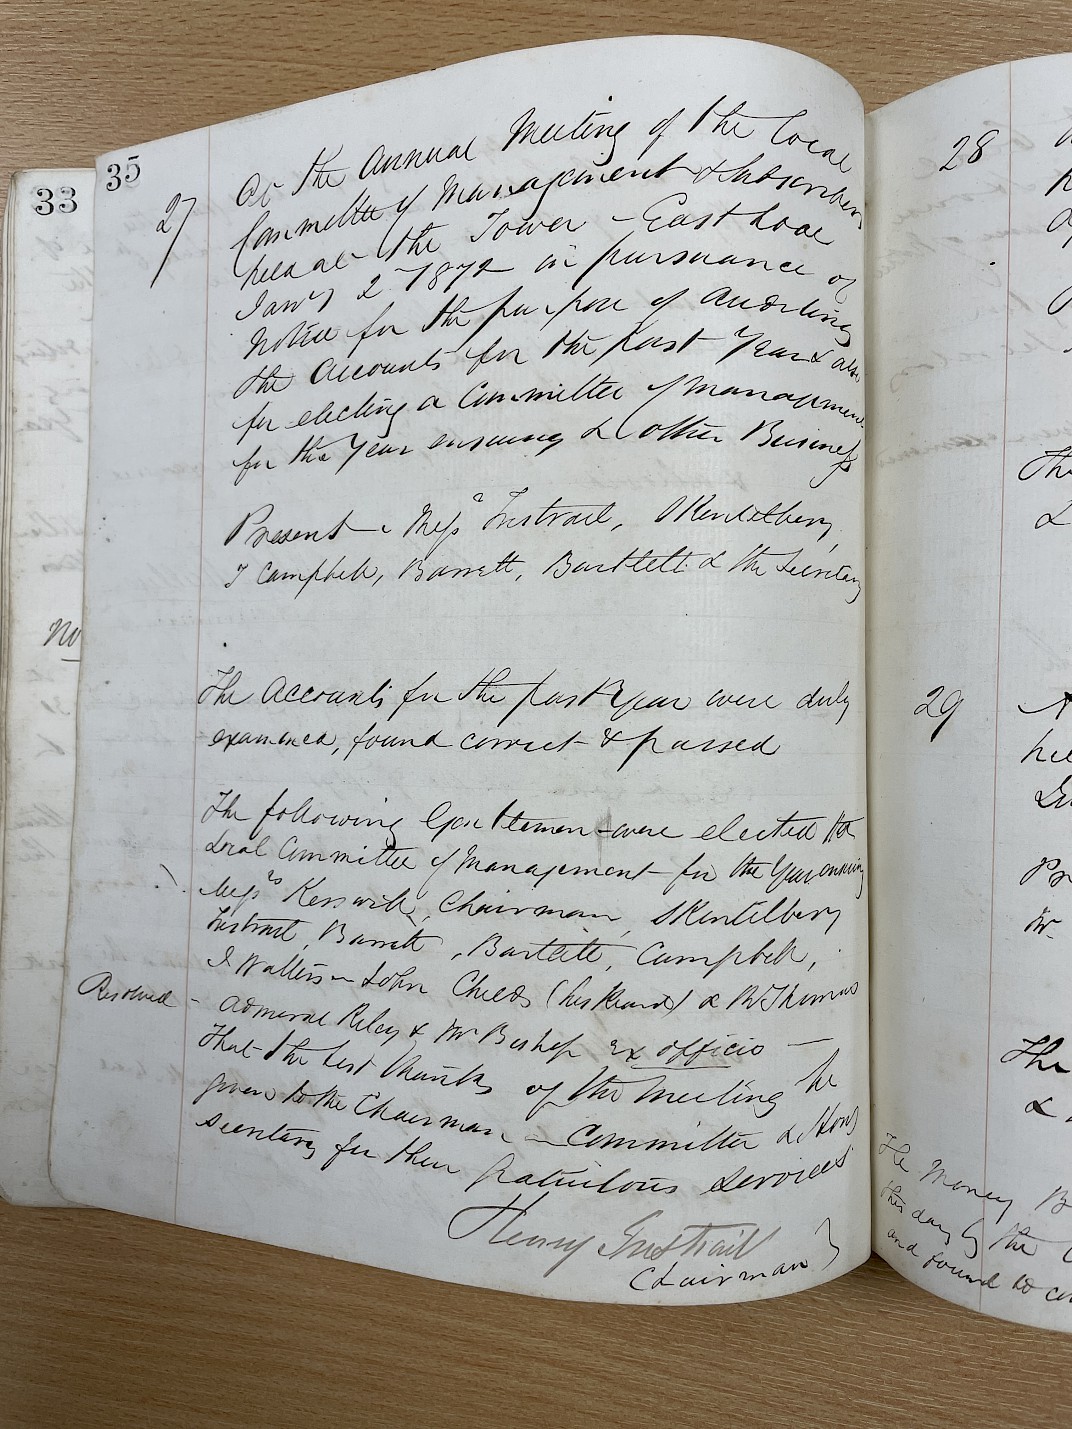 33
35
27
At the Annual Meeting of the Local
Committee of Management & Subscribers
held at the Tower - East Looe
Jany 2 - 1872 in pursuance of
Notice for the purpose of Auditing
the Accounts for the past Year & also
for electing a Committee of Management
for the Year ensuing & other Business
Present - Messrs Instrail, Skentelbery,
J Campbell, Barrett, Bartlett & the Secretary
No
The Accounts for the past Year were duly
examined, found correct & passed
The following Gentlemen were elected the
Local Committee of Management for the Year ensuing
Messrs Kesswill, Chairman, Skentelbery
Instrail, Barrett, Bartlett, Campbell,
J Watters - John Childs & R Thomas
Admiral Riley & Mr Bishop ex officio -
Resolved -
That the best thanks of the Meeting be
given to the Chairman - Committee & Hony
Secretary for their Gratuitous Services
Henry Instrail
Chairman
28
The
&
29
hel
Pr
Mr
The
&
The Money B
this day by the
and found to co